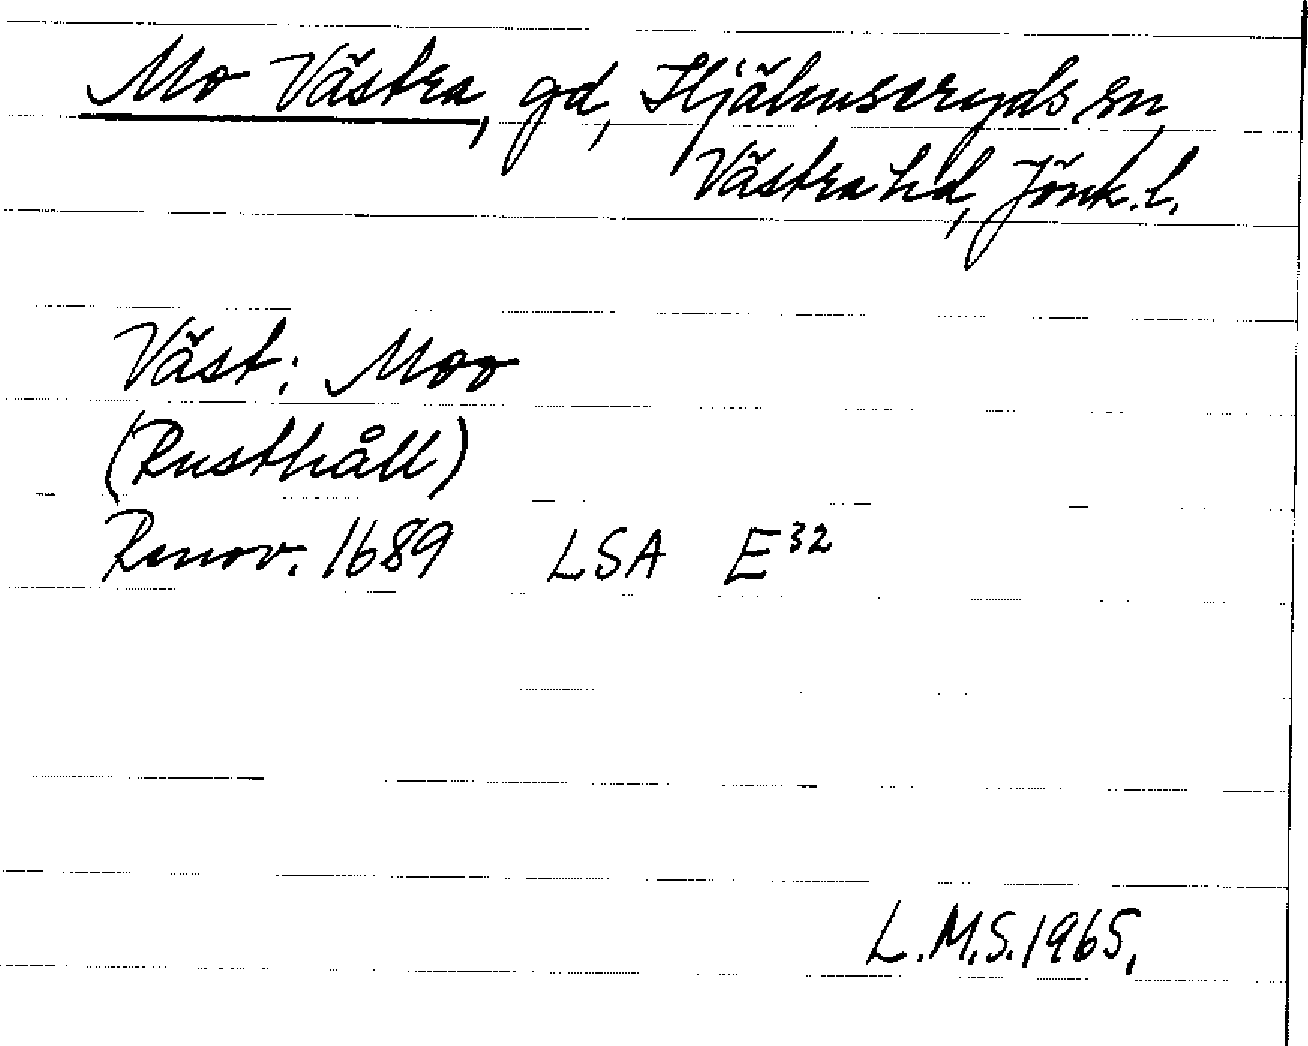 Mo Västra, gd, Hjälmseryds sn,
Västra hd, Jönk. l.
Väst: Moo
(Rusthåll)
Renov. 1689 LSA E³²
L.M.S. 1965.